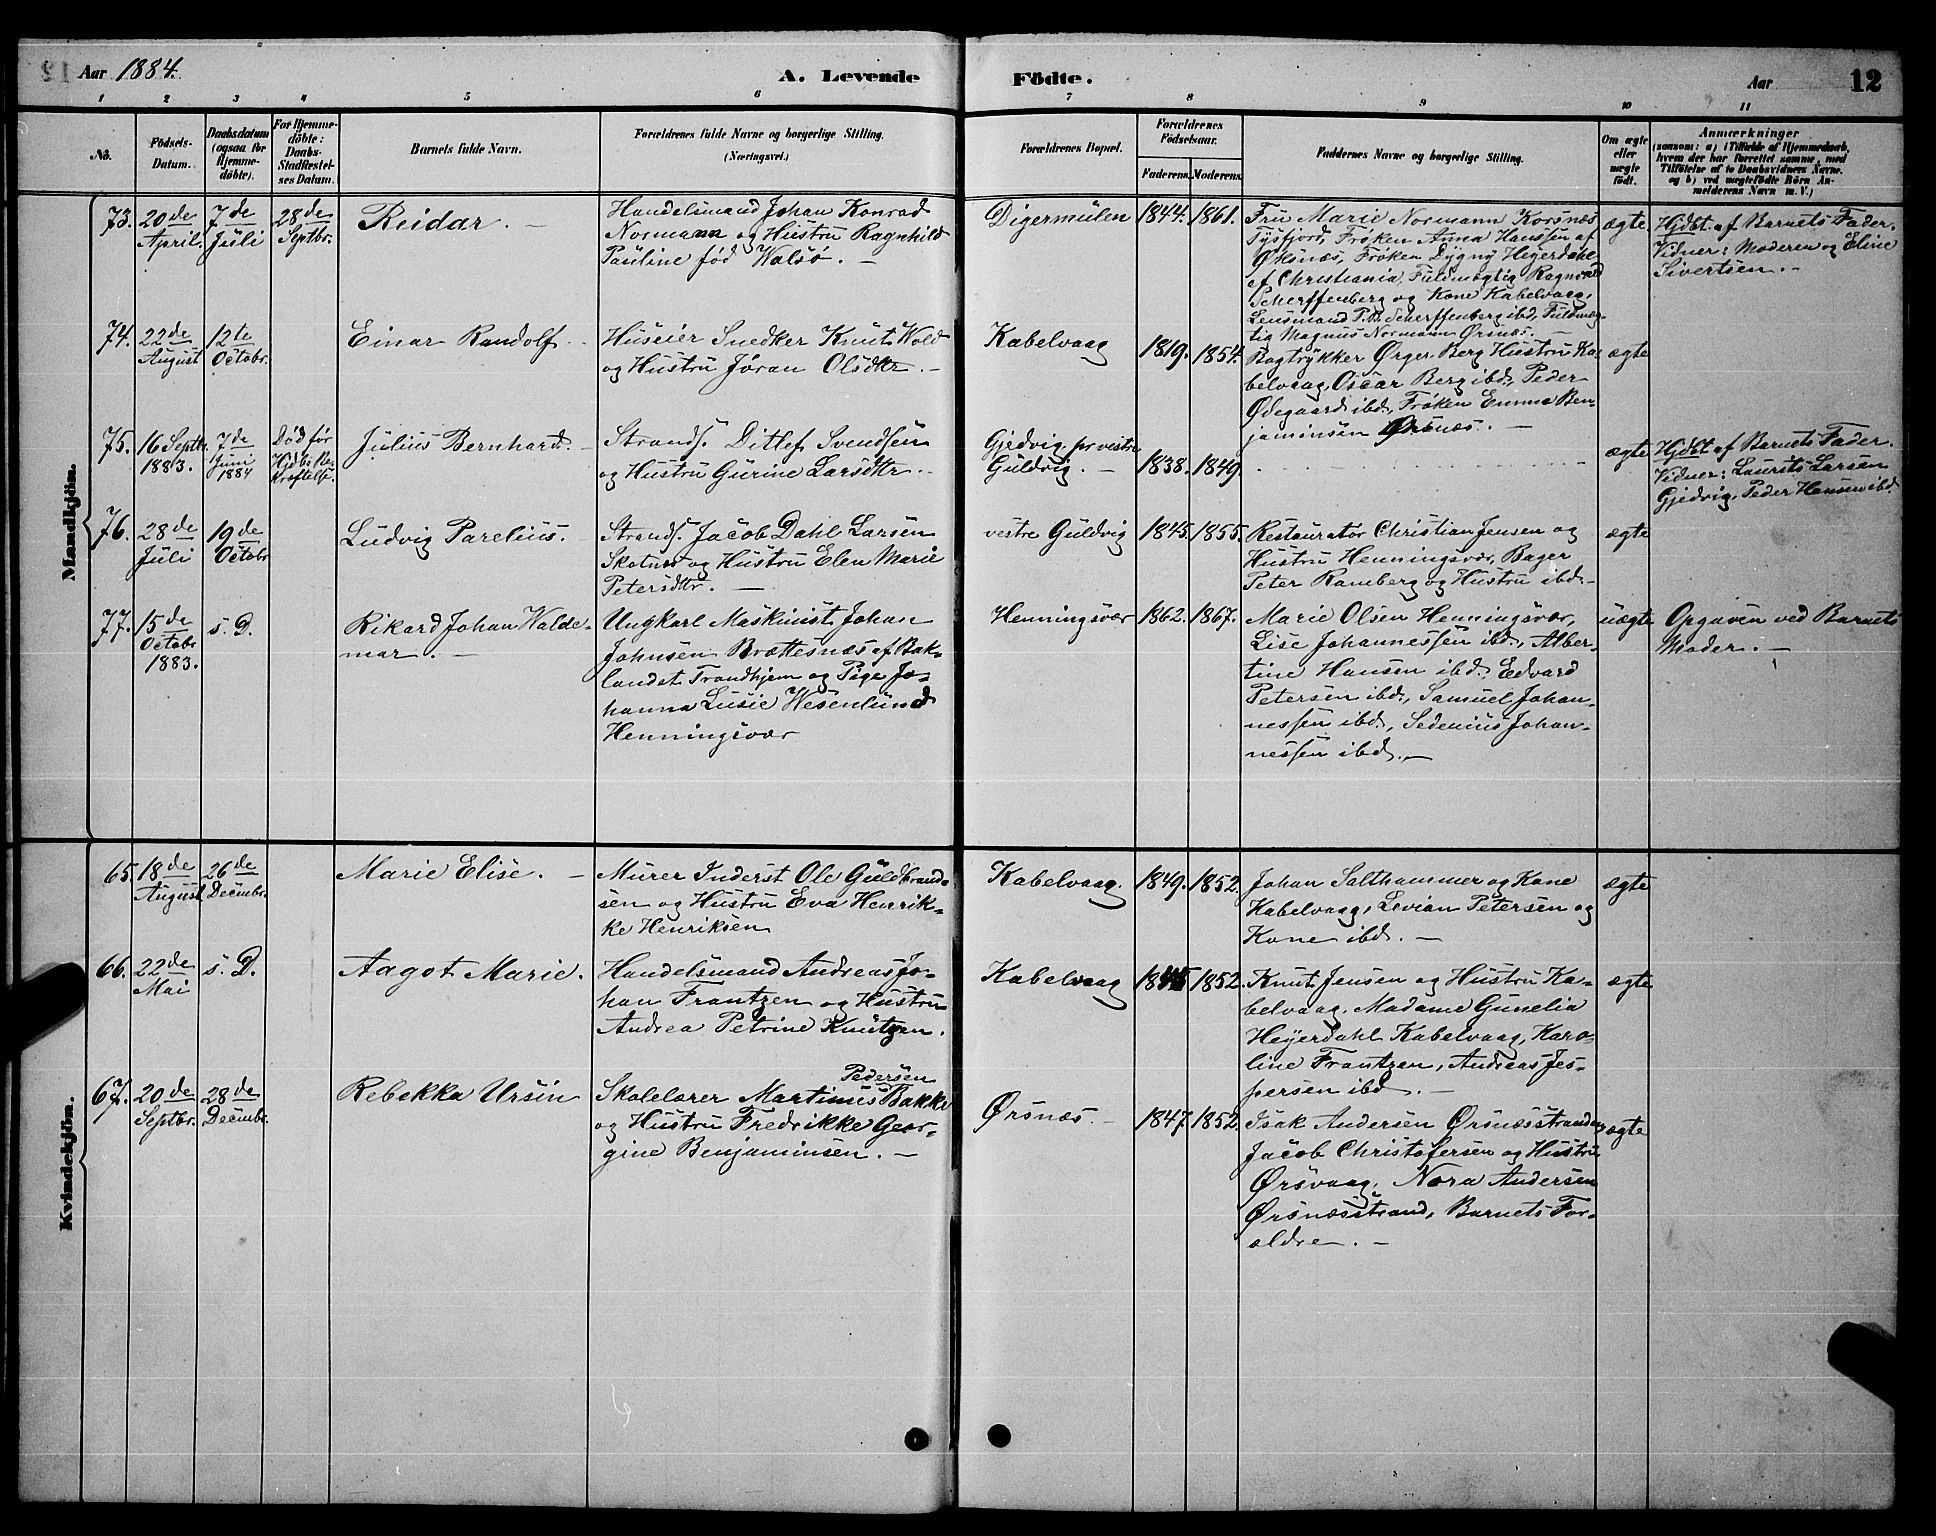 Aar 1884.
A. Levende
Födte.
Aar
12
1 2 3 4 5 6 7 8 9 10 11
No.
Födsels-
Datum.
Daabsdatum
(ogsaa for
Hjemme-
döbte).
For Hjemme-
döbte:
Daabs-
Stadfæstel-
ses Datum.
Barnets fulde Navn.
Forældrenes fulde Navne og borgerlige Stilling.
(Næringsvei.)
Forældrenes Bopæl.
Forældrenes
Födselsaar.
Faderens.
Moderens.
Faddernes Navne og borgerlige Stilling.
Om ægte
eller
uægte
födt.
Anmærkninger
(saasom: a) i Tilfælde af Hjemmedaab,
hvem der har forrettet samme, med
Tilföielse af to Daabsvidners Navne.
og b) ved uægtefödte Börn An-
melderens Navn m. V.)
Mandkjön.
73.
20de
April.
7de
Juli
28de
Septbr.
Reidar. —
Handelsmand Johan Konrad
Normann og Hustru Ragnhild
Pauline fød Walsø. —
Digermulen
1844.
1861.
Fru Marie Normann Korsnæs
Tysfjord, Frøken Anna Hanssen af
Øksnæs, Frøken Dygny Heyerdahl
af Christiania, Fuldmægtig Ragnvald
Scherffenberg og Kone Kabelvaag,
Lensmand P.B. Scherffenberg ibd. Fuldmæg-
tig Magnus Normann Ørsnæs. —
ægte
Hjdbt. af Barnets Fader.
Vidner: Moderen og Eline
Sivertsen. —
74.
22de
August
12te
Octobr.
Einar Randolf. —
Huseier Snedker Knut Wold
og Hustru Jøran Olsdtr. —
Kabelvaag
1819.
1854.
Bogtrykker Ørger Berg Hustru Ka-
belvaag, Oscar Berg ibd., Peder
Ødegaard ibd., Frøken Emma Ben-
jaminsen Ørsnæs. —
ægte
75.
16 Septbr.
1883.
7de
Juni
1884
Død før
Hjdbs Be-
kræftelse.
Julius Bernhard. —
Strands. Ditlef Svendsen
og Hustru Gurine Larsdtr. —
Gjedvig pr vestre
Guldvig. —
1838.
1849.
ægte
Hjdbt af Barnets Fader.
Vidner: Laurits Larsen
Gjedvig, Peder Hansen ibd.
76.
28de
Juli
19de
Octobr
Ludvig Parelius. —
Strands. Jacob Dahl Larsen
Skotnes og Hustru Elen Marie
Petersdtr. —
vestre Guldvig
1845.
1855.
Restauratør Christian Jensen og
Hustru Henningsvær, Bager
Peter Ramberg og Hustru ibd. —
ægte
77.
15de
Octobr
1883.
s. D.
Rikard Johan Walde-
mar. —
Ungkarl Maskinist Johan
Johnsen Brættesnæs af Bak-
landet Trondhjem og Pige Jo-
hanna Lusie Wesenlund
Henningsvær
Henningsvær
1862.
1867.
Marie Olsen Henningsvær,
Lise Johannessen ibd., Alber-
tine Hansen ibd., Edvard
Petersen ibd., Samuel Johan-
nessen ibd., Sedenius Johan-
nessen ibd. —
uægte
Opgaven ved Barnets
Moder. —
Kvindekjön.
65.
18de
August
26de
Decembr.
Marie Elise. —
Murer Inderst Ole Guldbrand-
sen og Hustru Eva Henrik-
ke Henriksen
Kabelvaag.
1849.
1852.
Johan Salthammer og Kone
Kabelvaag, Levian Petersen og
Kone ibd. —
ægte
66.
22de
Mai
s. D.
Aagot Marie.
Handelsmand Andreas Jo-
han Frantzen og Hustru
Andrea Petrine Knutzen.
Kabelvaag
1852.
Knut Jensen og Hustru Ka-
belvaag, Madame Gunelia
Heyerdahl Kabelvaag, Karo-
line Frantzen, Andreas Jes-
persen ibd. —
ægte
67.
20de
Septbr.
28de
Decembr.
Rebekka Ursin
Pedersen
Skolelærer Martinus Bakke
og Hustru Fredrikke Geor-
gine Benjaminsen. —
Ørsnæs. —
1847.
1852.
Isak Andersen Ørsnæsstranden,
Jacob Christofersen og Hustru
Ørsvaag, Nora Andersen
Ørsnæsstrand, Barnets For-
ældre. —
ægte